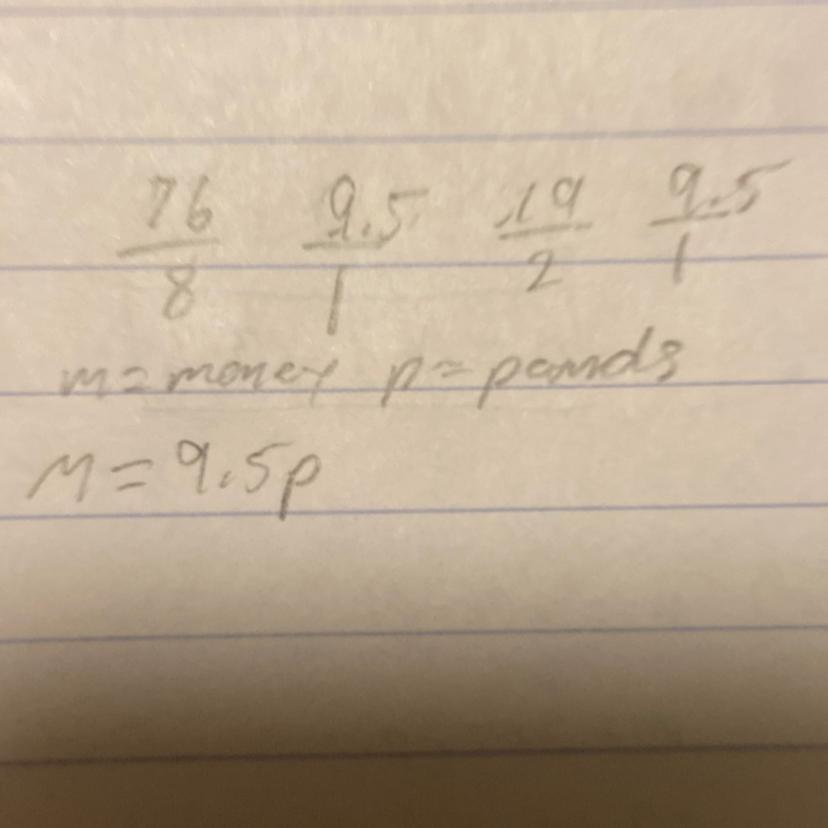 76/8 9.5/1 19/2 9.5/1
m=money p=pounds
M=9.5p